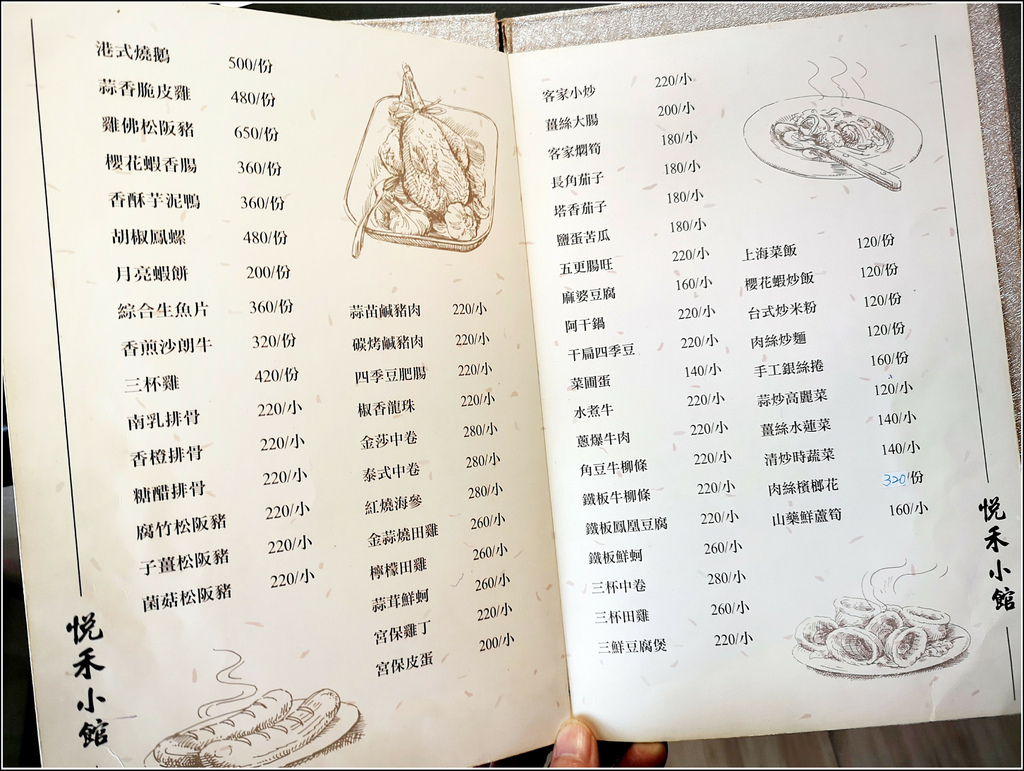 港式燒鵝 500/份
蒜香脆皮雞 480/份
雞佛松阪豬 650/份
櫻花蝦香腸 360/份
香酥芋泥鴨 360/份
胡椒鳳螺 480/份
月亮蝦餅 200/份
綜合生魚片 360/份
香煎沙朗牛 320/份
三杯雞 420/份
南乳排骨 220/小
香橙排骨 220/小
糖醋排骨 220/小
腐竹松阪豬 220/小
子薑松阪豬 220/小
菌菇松阪豬 220/小
蒜苗鹹豬肉 220/小
碳烤鹹豬肉 220/小
四季豆肥腸 220/小
椒香龍珠 220/小
金莎中卷 280/小
泰式中卷 280/小
紅燒海參 280/小
金蒜燒田雞 260/小
檸檬田雞 260/小
蒜茸鮮蚵 260/小
宮保雞丁 220/小
宮保皮蛋 200/小
悦禾小館
客家小炒 220/小
薑絲大腸 200/小
客家燜筍 180/小
長角茄子 180/小
塔香茄子 180/小
鹽蛋苦瓜 180/小
五更腸旺 220/小
麻婆豆腐 160/小
阿干鍋 220/小
干扁四季豆 220/小
菜圃蛋 140/小
水煮牛 220/小
蔥爆牛肉 220/小
角豆牛柳條 220/小
鐵板牛柳條 220/小
鐵板鳳凰豆腐 220/小
鐵板鮮蚵 260/小
三杯中卷 280/小
三杯田雞 260/小
三鮮豆腐煲 220/小
上海菜飯 120/份
櫻花蝦炒飯 120/份
台式炒米粉 120/份
肉絲炒麵 120/份
手工銀絲捲 160/份
蒜炒高麗菜 120/小
薑絲水蓮菜 140/小
清炒時蔬菜 140/小
肉絲檳榔花 320/份
山藥鮮蘆筍 160/小
悦禾小館